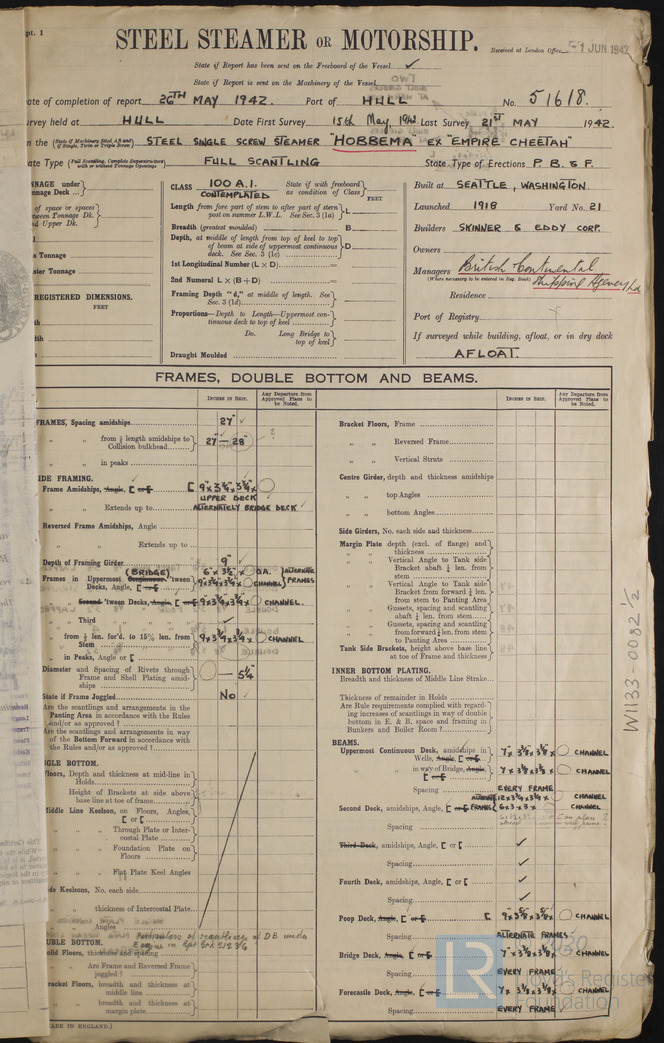 pt. 1
STEEL STEAMER OR MOTORSHIP.
Received at London Office 1 JUN 1942
State if Report has been sent on the Freeboard of the Vessel ✓
State if Report is sent on the Machinery of the Vessel
ate of completion of report 26TH MAY 1942. Port of HULL No. 51618.
urvey held at HULL Date First Survey 15th May 1942 Last Survey 21ST MAY 1942.
n the (State if Machinery fitted Aft and if Single, Twin or Triple Screw) STEEL SINGLE SCREW STEAMER "HOBBEMA" EX "EMPIRE CHEETAH"
ate Type (Full Scantling, Complete Superstructure with or without Tonnage Openings) FULL SCANTLING State Type of Erections P. B. & F.
NNAGE under
nnage Deck ...
of space or spaces
tween Tonnage Dk.
nd Upper Dk.
s Tonnage
ster Tonnage
REGISTERED DIMENSIONS.
FEET
CLASS 100 A.1. CONTEMPLATED State if with freeboard as condition of Class
FEET
Length from fore part of stem to after part of stern post on summer L.W.L. See Sec. 3 (1a) L
Breadth (greatest moulded) B
Depth, at middle of length from top of keel to top of beam at side of uppermost continuous deck. See Sec. 3 (1c) D
1st Longitudinal Number (L × D) =
2nd Numeral L × (B + D) =
Framing Depth "d," at middle of length. See Sec. 3 (1d)
Proportions—Depth to Length—Uppermost continuous deck to top of keel
Do. Long Bridge to top of keel
Draught Moulded
Built at SEATTLE, WASHINGTON.
Launched 1918 Yard No. 21
Builders SKINNER & EDDY CORP.
Owners
Managers British Continental Shipping Agency Ltd
(Where necessary to be entered in Reg. Book)
Residence
Port of Registry
If surveyed while building, afloat, or in dry dock
AFLOAT.
FRAMES, DOUBLE BOTTOM AND BEAMS.
INCHES IN SHIP. Any Departure from Approved Plans to be Noted.
FRAMES, Spacing amidships 27" ✓
" " from ⅗ length amidships to Collision bulkhead 27" — 28" ?
" " in peaks
IDE FRAMING.
Frame Amidships, Angle, [ or [ [ 9"x3¾"x3¾"x
" " Extends up to UPPER DECK ALTERNATELY BRIDGE DECK ✓
Reversed Frame Amidships, Angle
" " Extends up to
Depth of Framing Girder 9" ✓
Frames in Uppermost Continuous (BRIDGE) 'tween Decks, Angle, [ or [ 6"x3½"x O.A. 9x3¾x3¾x CHANNEL } ALTERNATE FRAMES
" Second 'tween Decks, Angle, [ or [ 9x3¾x3¾x CHANNEL.
" Third " " ✓
" from ⅕ len. for'd. to 15% len. from Stem 9x3¾x3¾x CHANNEL
" in Peaks, Angle or [
Diameter and Spacing of Rivets through Frame and Shell Plating amidships — 5¼"
State if Frame Joggled No ✓
Are the scantlings and arrangements in the Panting Area in accordance with the Rules and/or as approved ?
Are the scantlings and arrangements in way of the Bottom Forward in accordance with the Rules and/or as approved ?
NGLE BOTTOM.
Floors, Depth and thickness at mid-line in Holds
" Height of Brackets at side above base line at toe of frame
Middle Line Keelson, on Floors, Angles, [ or [
" " Through Plate or Intercostal Plate
" " Foundation Plate on Floors
" " Flat Plate Keel Angles
de Keelsons, No. each side
" " thickness of Intercostal Plate
" " Angles
UBLE BOTTOM. Particulars of scantlings of D B under
olid Floors, thickness and spacing
" " Are Frame and Reversed Frame joggled ?
racket Floors, breadth and thickness at middle line
" " breadth and thickness at margin plate
ADE IN ENGLAND.)
INCHES IN SHIP. Any Departure from Approved Plans to be Noted.
Bracket Floors, Frame
" " Reversed Frame
" " Vertical Struts
Centre Girder, depth and thickness amidships
" " top Angles
" " bottom Angles
Side Girders, No. each side and thickness
Margin Plate depth (excl. of flange) and thickness
" " Vertical Angle to Tank side Bracket abaft ¼ len. from stem
" " Vertical Angle to Tank side Bracket from forward ¼ len. from stem to Panting Area
" " Gussets, spacing and scantling abaft ¼ len. from stem
" " Gussets, spacing and scantling from forward ¼ len. from stem to Panting Area
Tank Side Brackets, height above base line at toe of Frame and thickness
INNER BOTTOM PLATING.
Breadth and thickness of Middle Line Strake
Thickness of remainder in Holds
Are Rule requirements complied with regarding increases of scantlings in way of double bottom in E. & B. space and framing in Bunkers and Boiler Room ?
BEAMS.
Uppermost Continuous Deck, amidships in Wells, Angle, [ or [ 7"x3⅜x3⅜x CHANNEL
" " in way of Bridge, Angle, [ or [ 7x3⅜x3⅜x CHANNEL
Spacing EVERY FRAME
Second Deck, amidships, Angle, [ or [ ALTERNATE FRAMES 12x3¾x3¾x CHANNEL 6x3x3x CHANNEL
Spacing
Third Deck, amidships, Angle, [ or [ ✓
Spacing ✓
Fourth Deck, amidships, Angle, [ or [ ✓
Spacing ✓
Poop Deck, Angle, [ or [ [ 9x3⅜x3⅜x CHANNEL
Spacing ALTERNATE FRAMES
Bridge Deck, Angle, [ or [ 7"x3⅜x3⅜x CHANNEL
Spacing EVERY FRAME
Forecastle Deck, Angle, [ or [ 7x3⅜x3⅜x CHANNEL
Spacing EVERY FRAME
W1133-0082 ½
LR
Lloyd's Register
Foundation